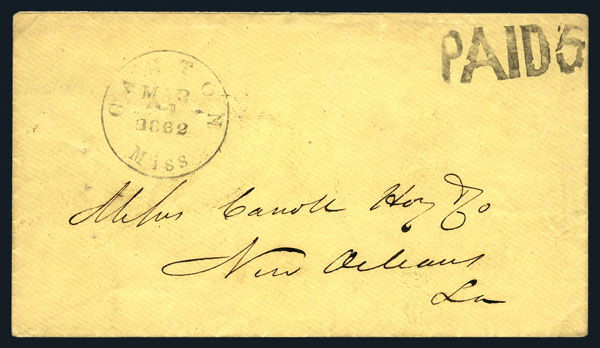 PAID 5
CANTON
MAR
1862
Miss
Messrs Carroll Hoy & Co
New Orleans
La